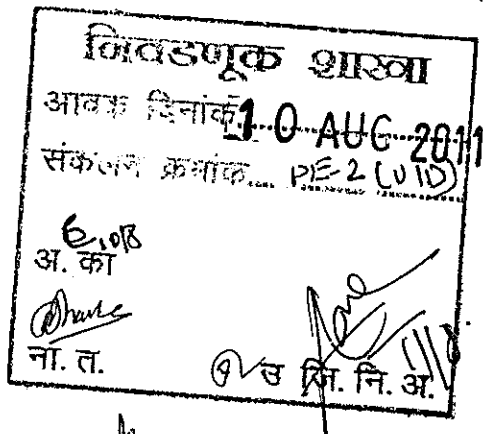 निवडणूक शाखा
आवक दिनांक 10 AUG 2011
संकलन क्रमांक PE-2 (UID)
अ. का
ना. त.
उ जि. नि. अ.